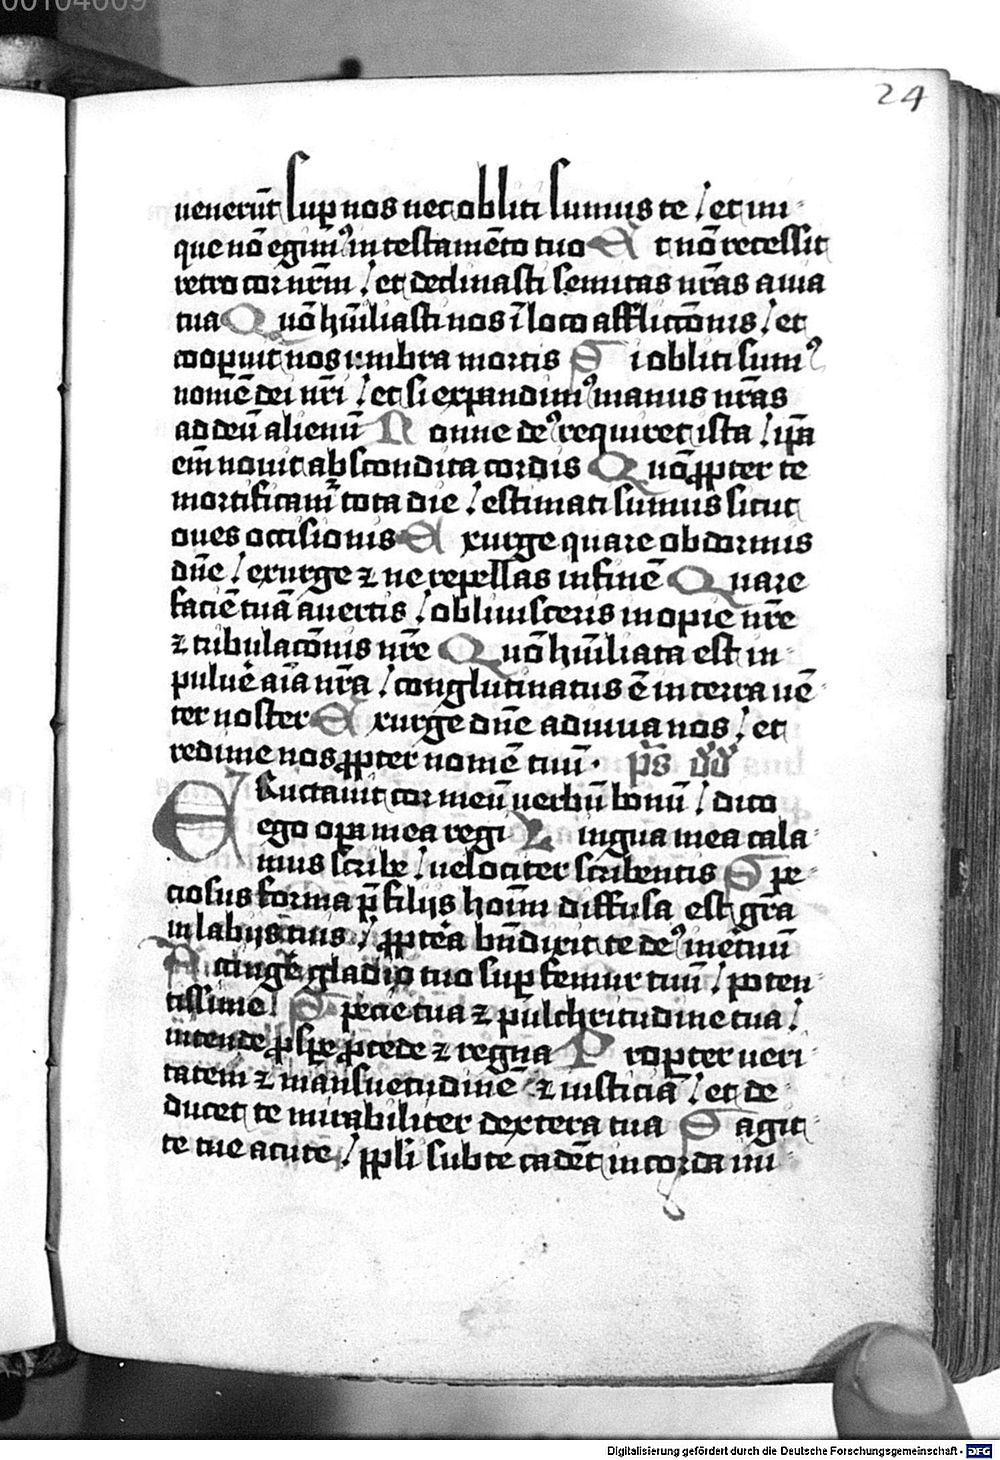 00104009
24
uenerūt sup̱ nos nec obliti sumus te / et ini-
que nō egim᷒ in testamēto tuo Et nō recessit
retro cor nr̄m / et declinasti semitas nr̄as a uia
tua Quō hūiliasti nos ī loco afflicc̄onis / et
coop̱uit nos umbra mortis Si obliti sum᷒
nomē dei nr̄i / et si expandim᷒ manus nr̄as
ad deū alienū Nonne de᷒ requiret ista / ip̄e
em̄ nouit abscondita cordis Quō ꝓpter te
mortificam̄ tota die / estimati sumus sicut
oues occisionis Exurge quare obdormis
dn̄e / exurge ⁊ ne repellas in finē Quare
faciē tuā auertis / obliuisceris inopie nr̄e
⁊ tribulac̄onis nr̄e Quō hūiliata est in
puluē aīa nr̄a / conglutinatus ē in terra uē-
ter noster Exurge dn̄e adiuua nos / et
redime nos ꝓpter nomē tuū · p̄s
ERuctauit cor meū uerbū bonū / dico
ego op̱a mea regi Lingua mea cala-
mus scribe / uelociter scribentis Spe-
ciosus forma p̄ filijs hoīm diffusa est gr̄a
in labijs tuis / ꝓptea bn̄dixit te de᷒ in et̄nū
Accinge̱ gladio tuo sup̱ femur tuū / poten-
tissime / Specie tua ⁊ pulchritudine tua /
intende ꝓsp̱e ꝓcede ⁊ regna Propter ueri-
tatem ⁊ mansuetudinē ⁊ iusticiā / et de-
ducet te mirabiliter dextera tua Sagit-
te tue acute / ꝓpli sub te cadēt in corda ini-
Digitalisierung gefördert durch die Deutsche Forschungsgemeinschaft - DFG